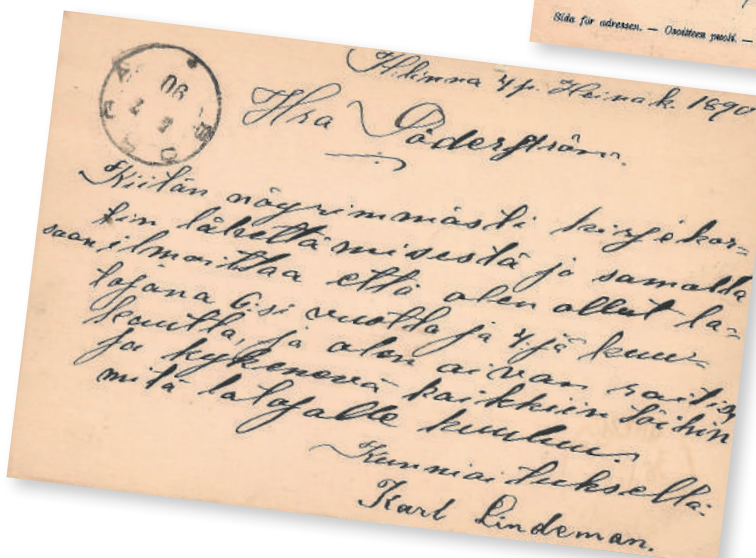 Sida för adressen. — Osoitteen puoli. —
H:linna 4 p. Heinäk. 1890
Hra Söderström.
Kiitän nöyrimmästi kirjekor-
tin lähettämisestä ja samalla
saan ilmoittaa että olen ollut la-
tojana 6:si vuotta ja 4:jä kuu-
kautta, ja olen aivan raitis
ja kykenevä kaikkiin töihin
mitä latojalle kuuluu.
Kunnioituksella:
Karl Lindeman.